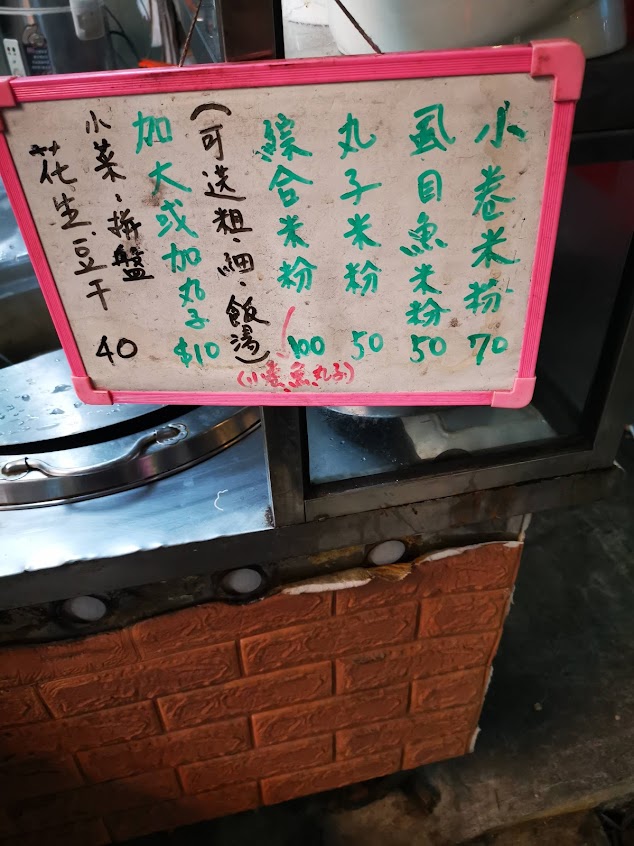 小卷米粉 70
虱目魚米粉 50
丸子米粉 50
綜合米粉 100
(小卷魚丸子)
(可送粗、細、飯湯)
加大或加丸子 $10
小菜、拼盤 40
花生、豆干